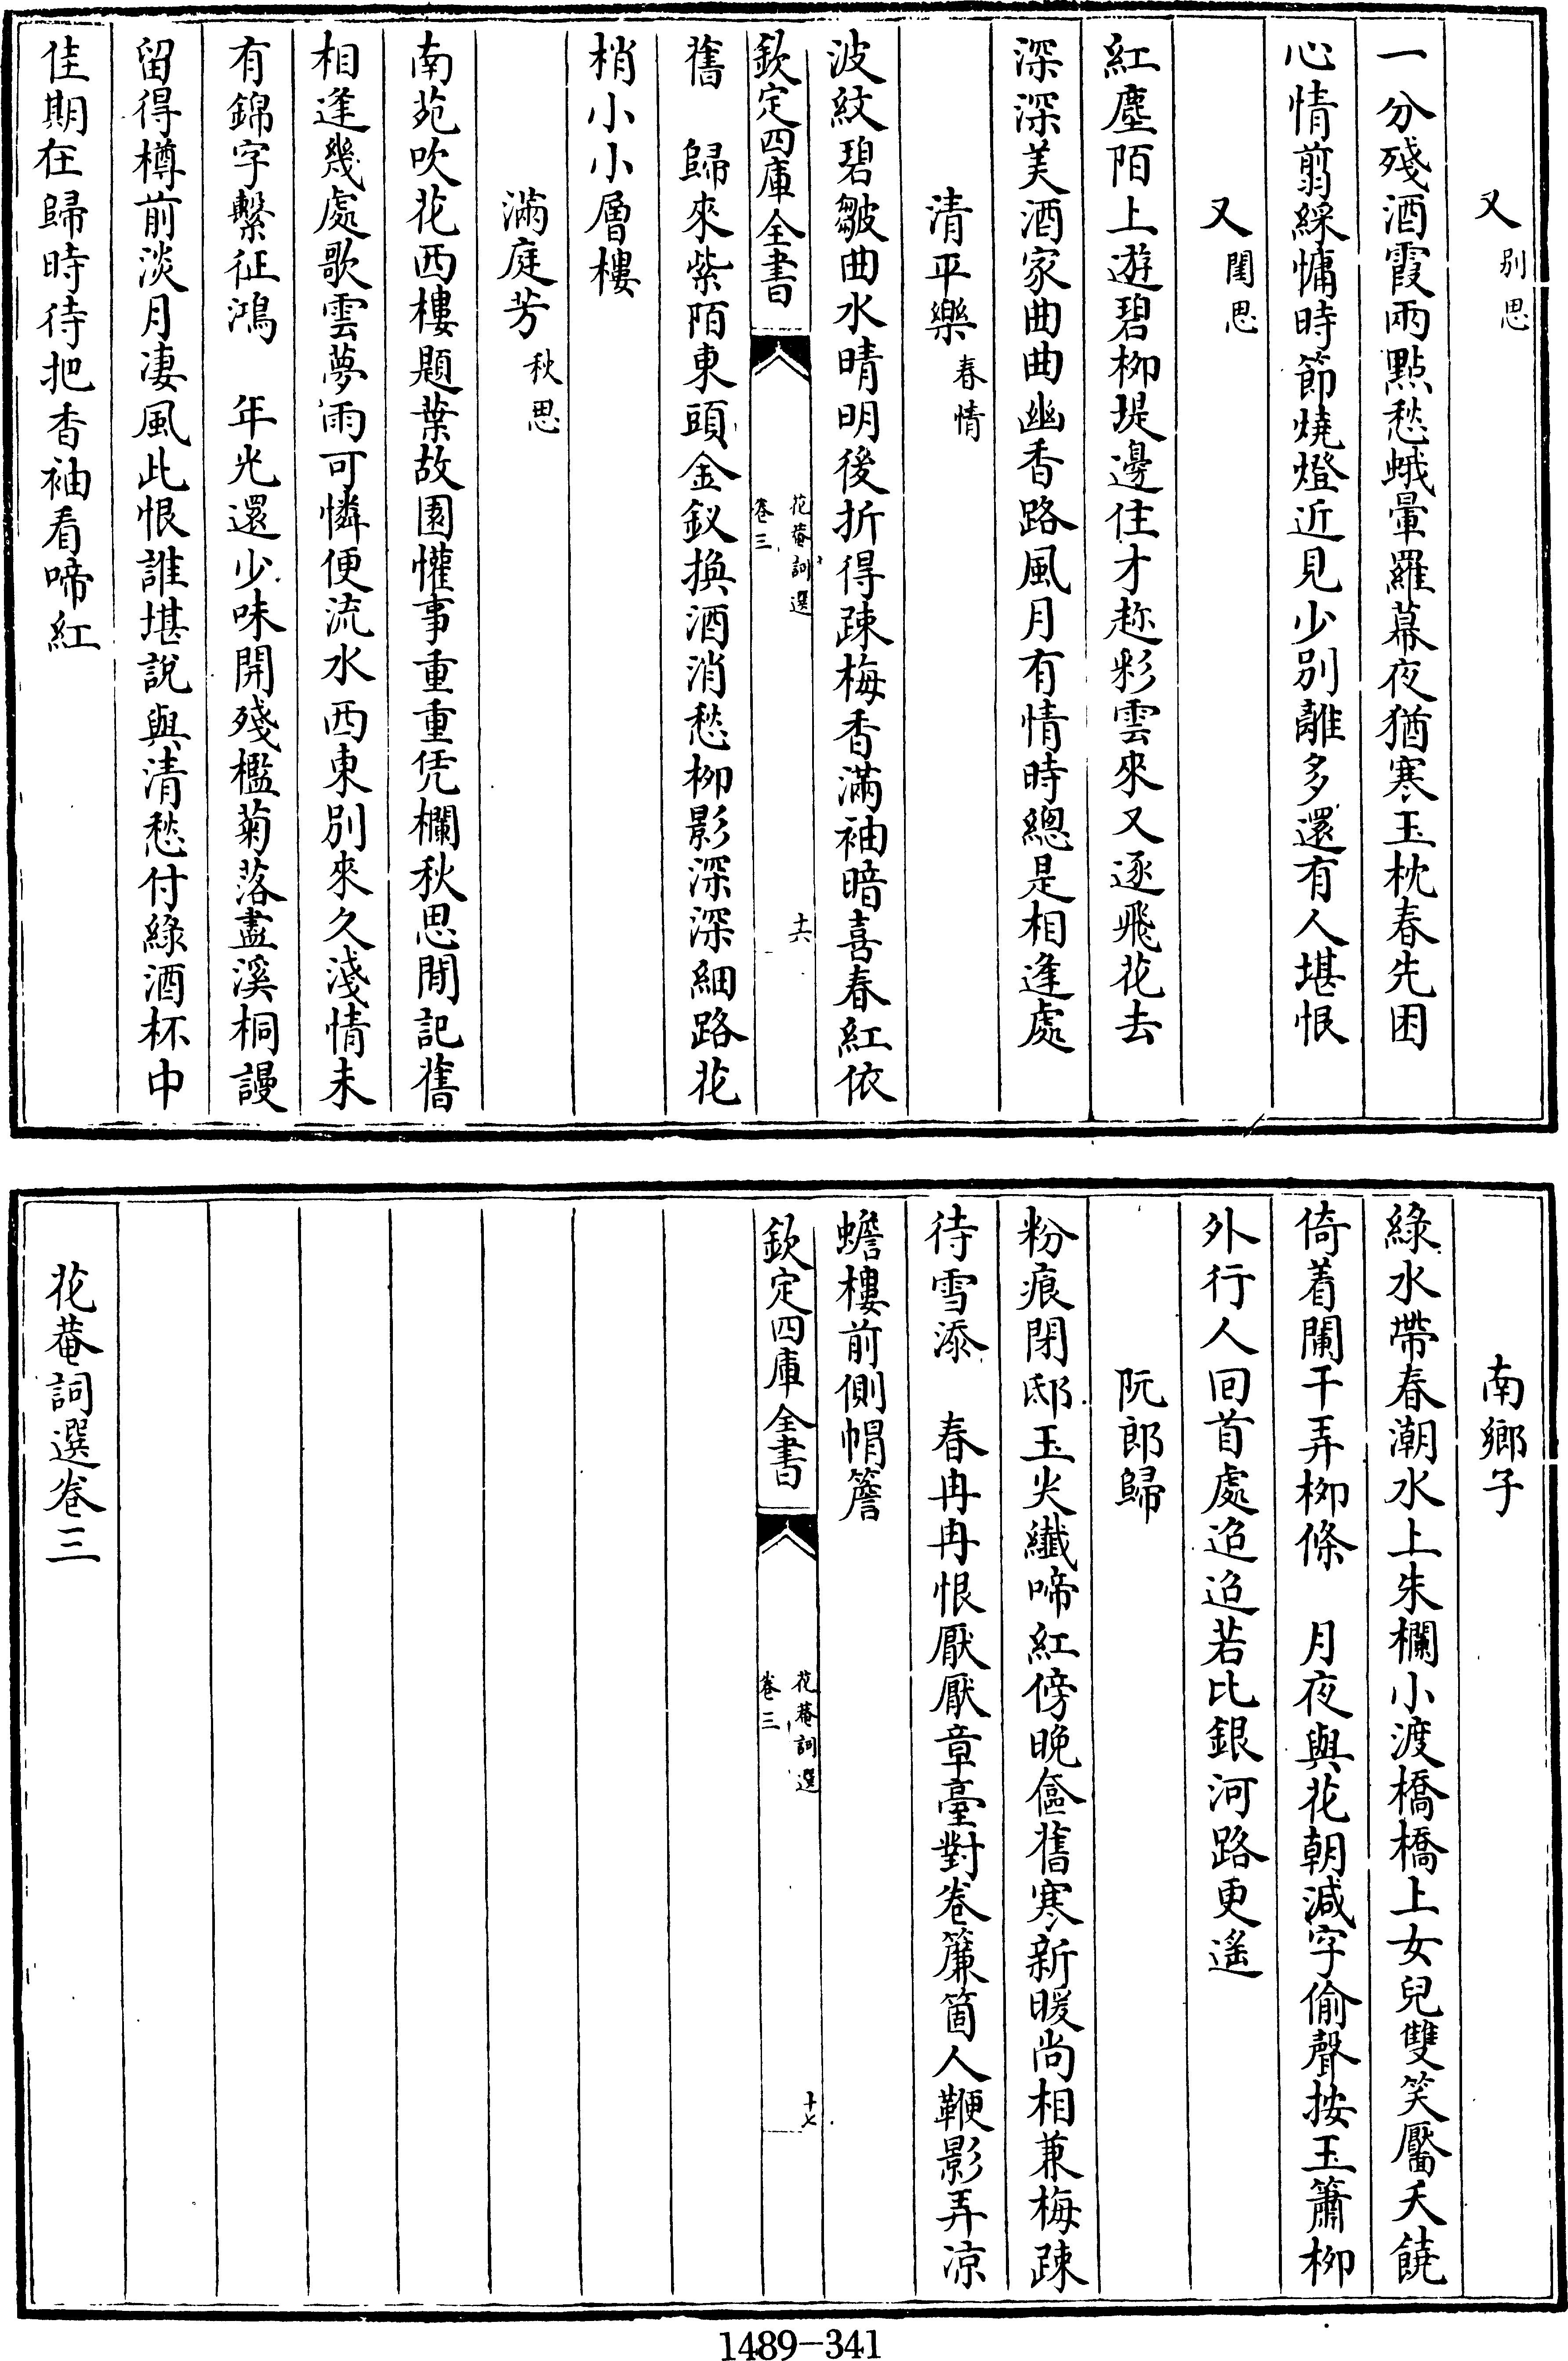 又 别思
一分殘酒霞兩點愁蛾暈羅幕夜猶寒玉枕春先困
心情翦綵慵時節燒燈近見少別離多還有人堪恨
又 閨思
紅塵陌上遊碧柳堤邊住才趂彩雲來又逐飛花去
深深美酒家曲曲幽香路風月有情時總是相逢處
清平樂 春情
波紋碧皺曲水晴明後折得踈梅香滿袖暗喜春紅依
欽定四庫全書
花菴詞選
卷三
十六
舊　歸來紫陌東頭金釵換酒消愁柳影深深細路花
梢小小層樓
滿庭芳 秋思
南苑吹花西樓題葉故園懽事重重凭欄秋思閒記舊
相逢幾處歌雲夢雨可憐便流水西東別來久淺情未
有錦字繫征鴻　年光還少味開殘檻菊落盡溪桐謾
留得樽前淡月凄風此恨誰堪說與清愁付綠酒杯中
佳期在歸時待把香袖看啼紅
南鄉子
綠水帶春潮水上朱欄小渡橋橋上女兒雙笑靨夭饒
倚着闌干弄柳條　月夜與花朝減字偷聲按玉簫柳
外行人回首處迢迢若比銀河路更遙
阮郎歸
粉痕閉邸玉尖纖啼紅傍晚奩舊寒新暖尚相兼梅踈
待雪添　春冉冉恨厭厭章臺對卷簾箇人鞭影弄凉
蟾樓前側帽簷
欽定四庫全書
花菴詞選
卷三
十七
花菴詞選卷三
1489-341